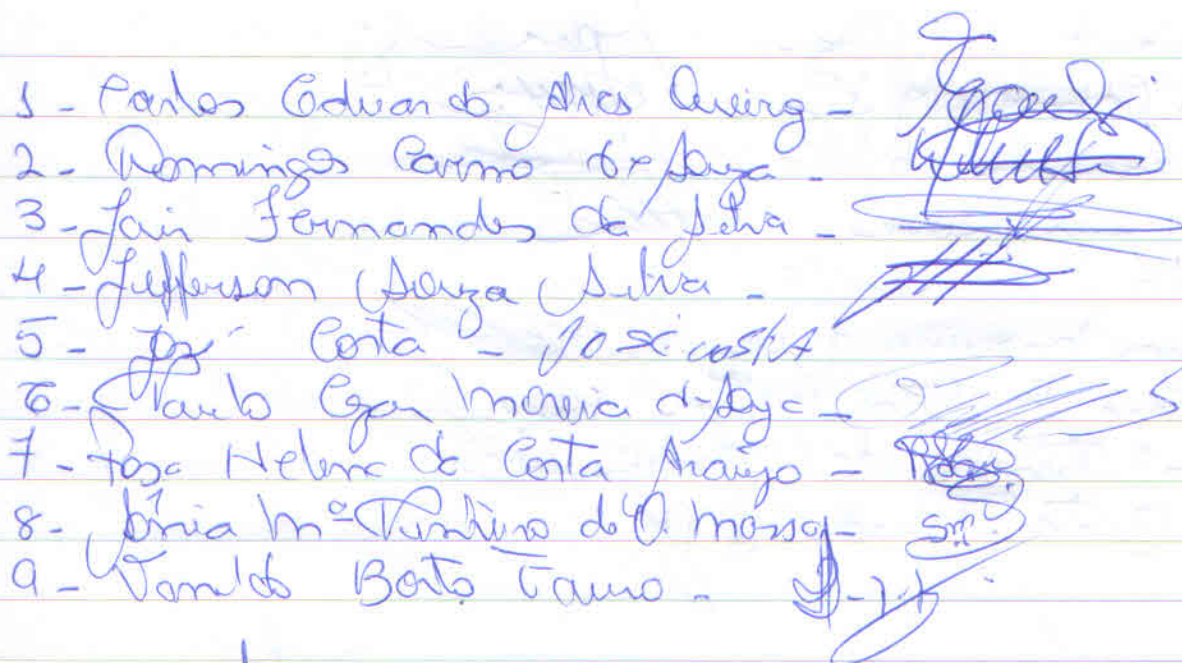 1 - Carlos Eduardo Alves Queiroz -
2 - Domingos Carmo de Souza -
3 - Jair Fernandes da Silva -
4 - Jefferson Souza Silva -
5 - José Costa - José COSTA
6 - Paulo Cezar Moreira de Souza -
7 - Rosa Helena da Costa Araújo -
8 - Sônia Mª do O.
9 - Bento Tauro -